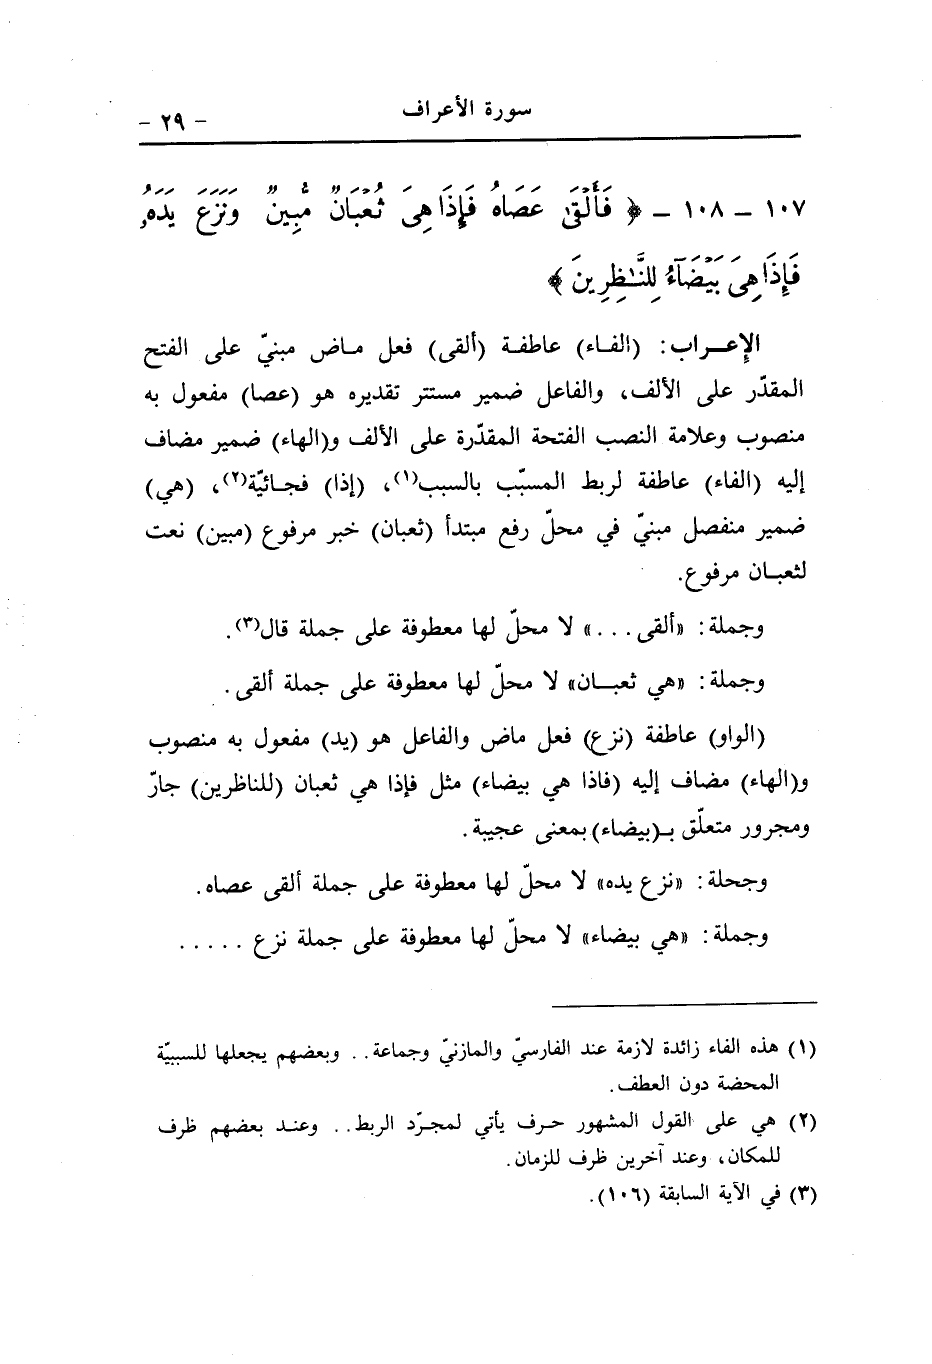 سورة الأعراف
- ٢٩ -
١٠٧ - ١٠٨ - ﴿ فَأَلْقَىٰ عَصَاهُ فَإِذَا هِيَ ثُعْبَانٌ مُّبِينٌ وَنَزَعَ يَدَهُۥ
فَإِذَا هِيَ بَيْضَآءُ لِلنَّـٰظِرِينَ ﴾
الإعـراب: (الفـاء) عاطفـة (ألقى) فعل مـاض مبنيّ على الفتح
المقدّر على الألف، والفاعل ضمير مستتر تقديره هو (عصا) مفعول به
منصوب وعلامة النصب الفتحة المقدّرة على الألف و(الهاء) ضمير مضاف
إليه (الفاء) عاطفة لربط المسبّب بالسبب(١)، (إذا) فجـائيّة(٢)، (هي)
ضمير منفصل مبنيّ في محلّ رفع مبتدأ (ثعبان) خبر مرفوع (مبين) نعت
لثعبـان مرفوع.
وجملة: «ألقى ...» لا محلّ لها معطوفة على جملة قال(٣).
وجملة: «هي ثعبـان» لا محلّ لها معطوفة على جملة ألقى.
(الواو) عاطفة (نزع) فعل ماض والفاعل هو (يد) مفعول به منصوب
و(الهاء) مضاف إليه (فاذا هي بيضاء) مثل فإذا هي ثعبان (للناظرين) جارّ
ومجرور متعلّق بـ(بيضاء) بمعنى عجيبة.
وجحلة: «نزع يده» لا محلّ لها معطوفة على جملة ألقى عصاه.
وجملة: «هي بيضاء» لا محلّ لها معطوفة على جملة نزع .....
(١) هذه الفاء زائدة لازمة عند الفارسيّ والمازنيّ وجماعة.. وبعضهم يجعلها للسببيّة
المحضة دون العطف.
(٢) هي على القول المشهور حـرف يأتي لمجـرّد الربط.. وعنـد بعضهم ظرف
للمكان، وعند آخرين ظرف للزمان.
(٣) في الآية السابقة (١٠٦).